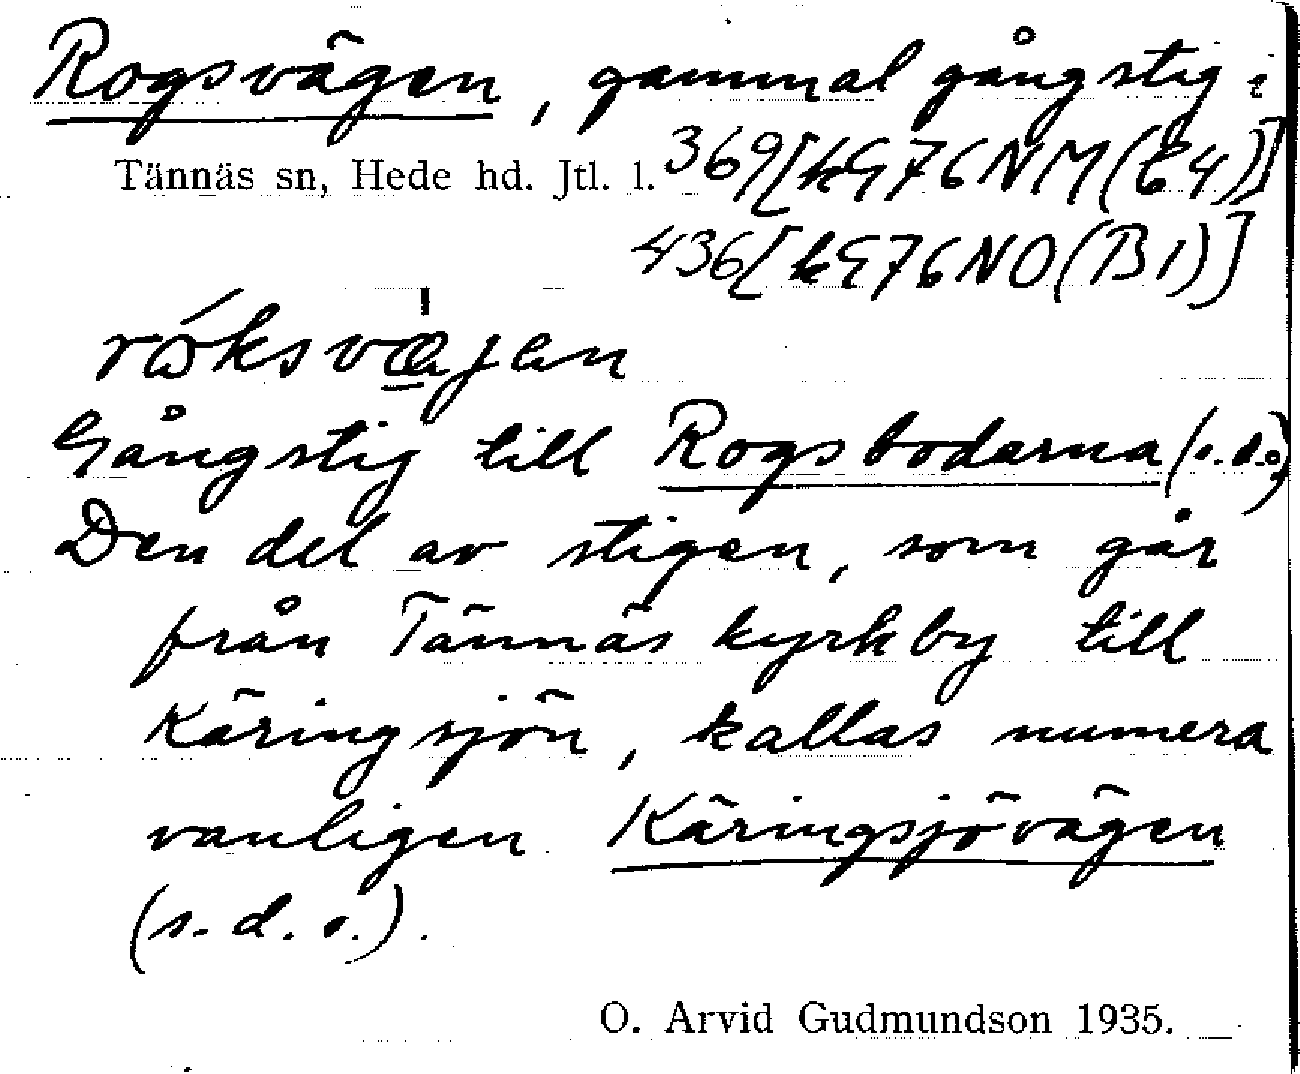 Rogsvägen, gammal gångstig i
Tännäs sn, Hede hd. Jtl. l. 369[kG76NM(E4)]
436[kG76NO(B1)]
Gångstig till Rogsbodarna (s.d.o.)
Den del av stigen, som går
från Tännäs kyrkby till
Käringsjön, kallas numera
vanligen Käringsjövägen
(s.d.o.).
O. Arvid Gudmundson 1935.